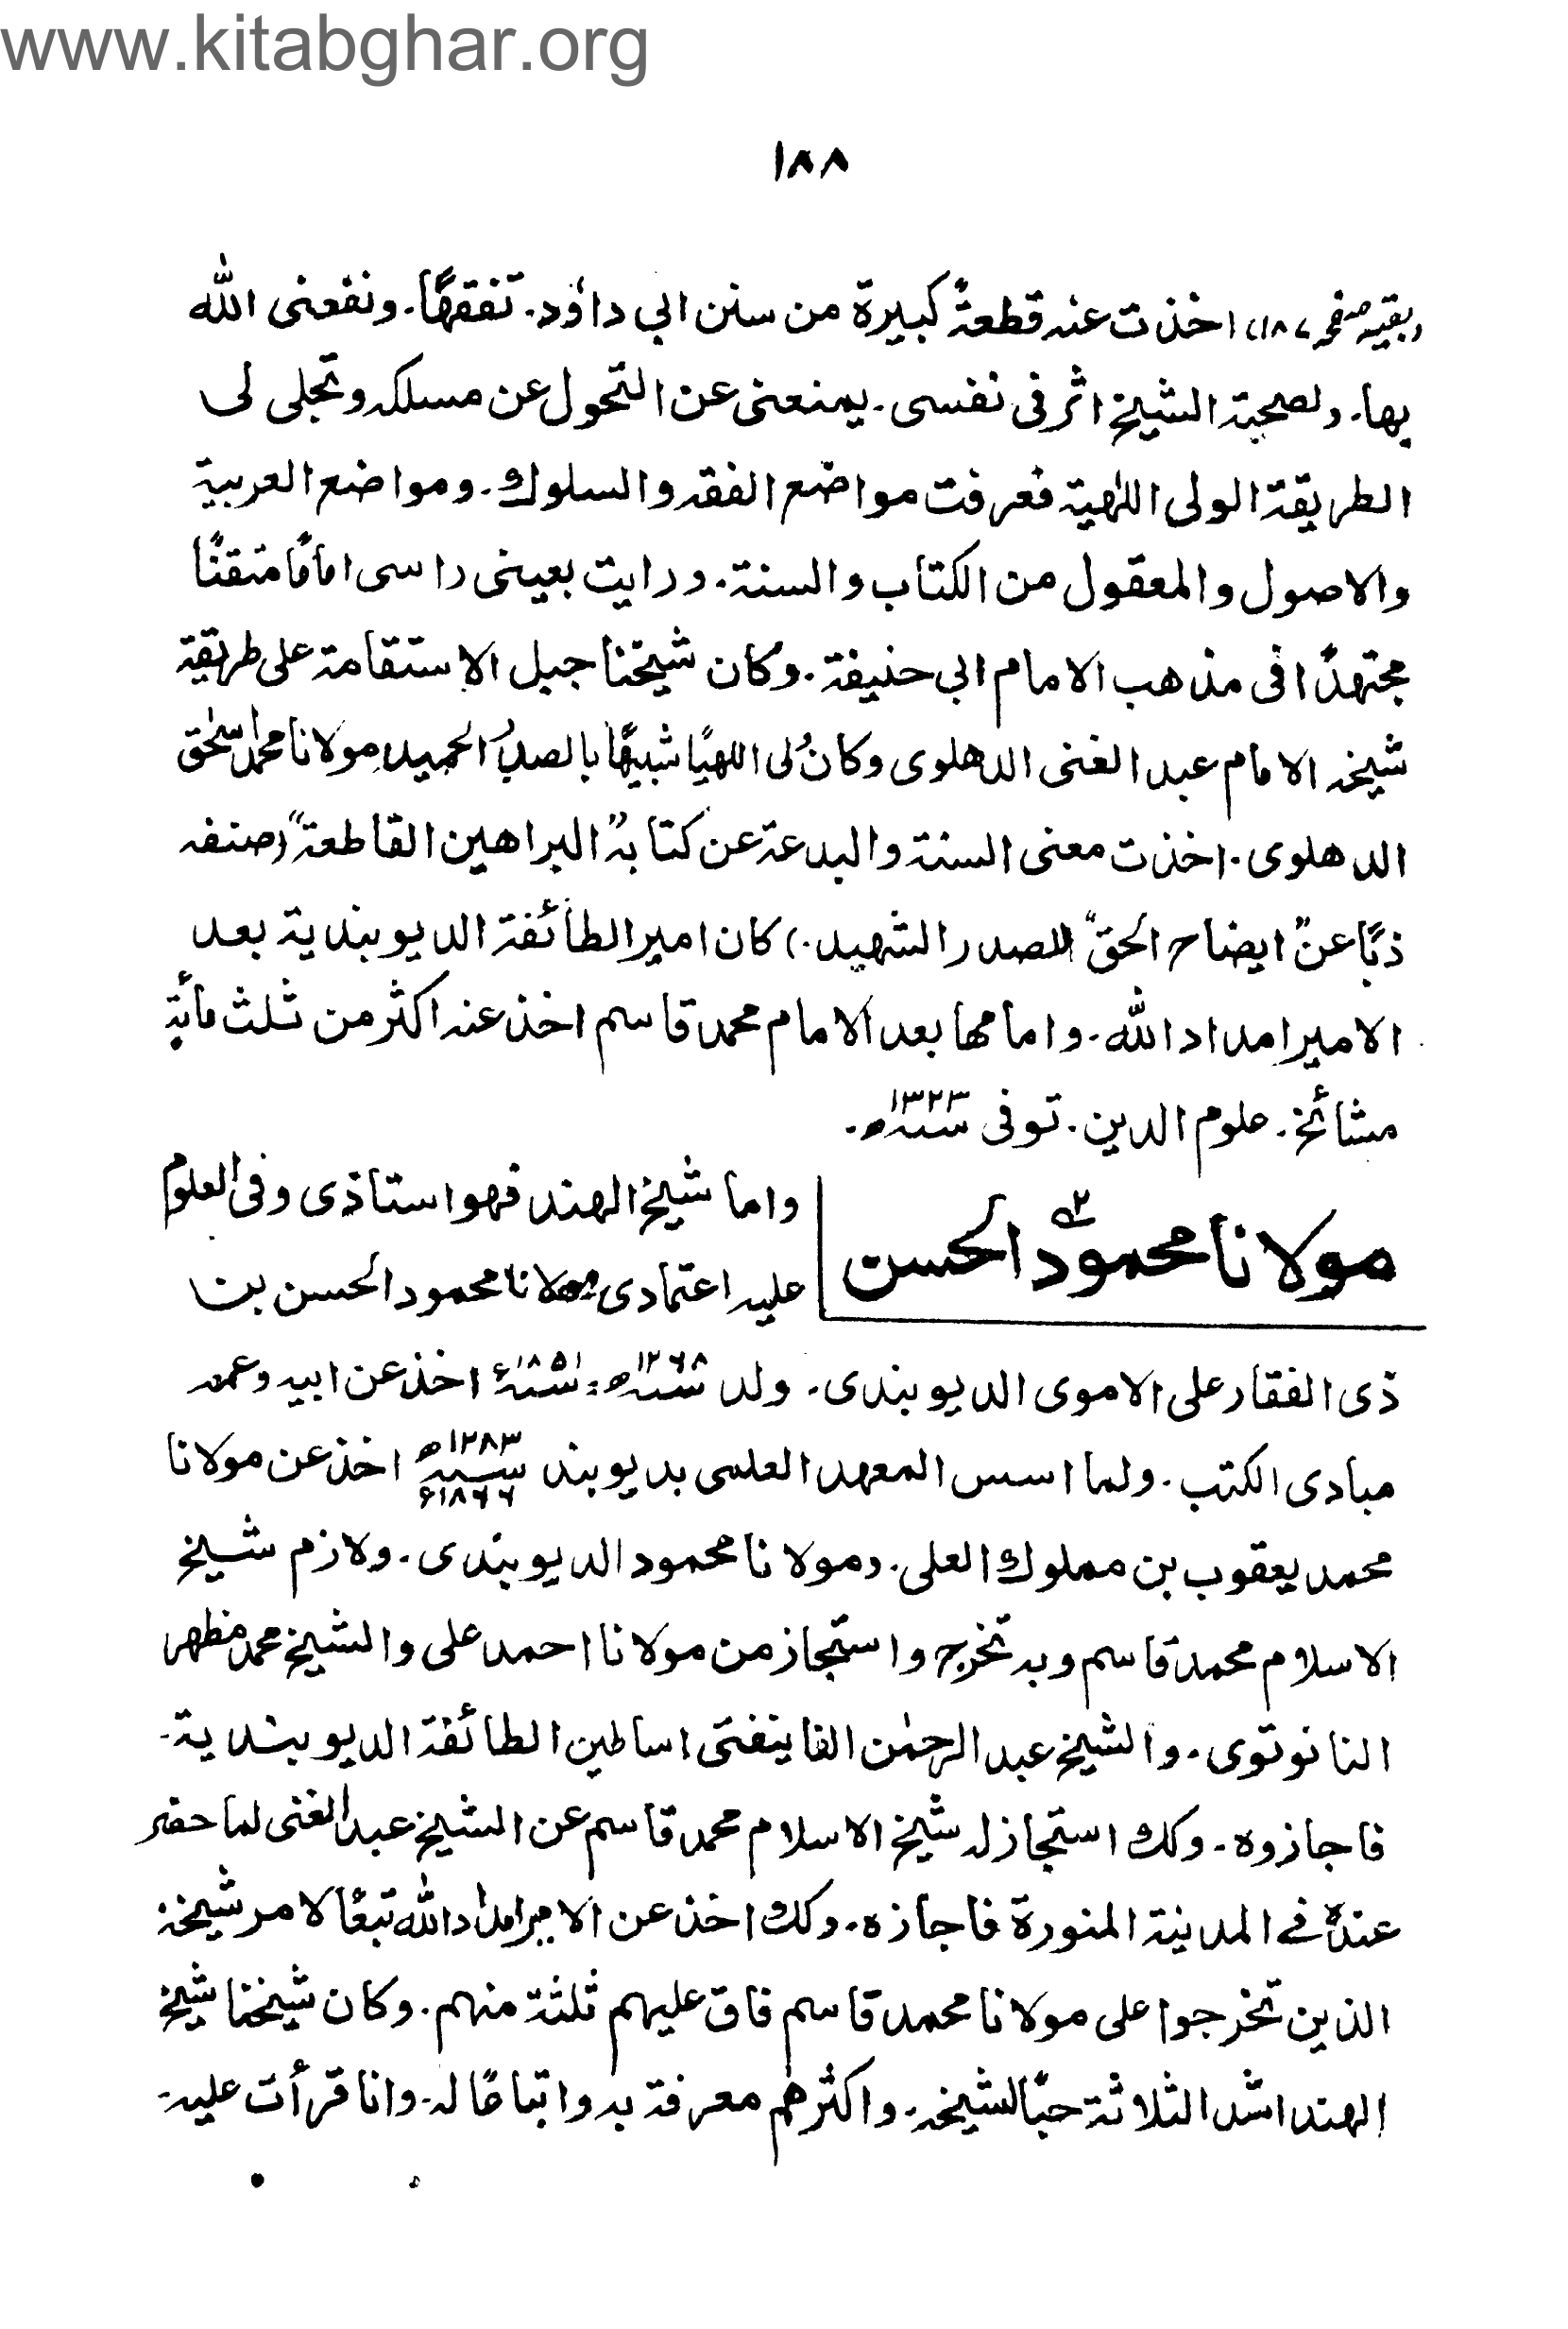 www.kitabghar.org
۱۸۸
(بقیہ صفحہ ۱۸۷) اخذت عنہ قطعةً کبیرة من سنن ابی داؤد۔ تفقهًا۔ ونفعنی اللہ
بها۔ ولصحبة الشیخ اثر فی نفسی۔ یمنعنی عن التحول عن مسلکہ وتجلی لی
الطریقة الولی اللہیة فعرفت مواضع الفقہ والسلوک۔ ومواضع العربیة
والاصول والمعقول من الکتاب والسنة۔ ورایت بعینی راسی امامًا متقنًا
مجتهدًا فی مذهب الامام ابی حنیفة۔ وکان شیخنا جبل الاستقامة علی طریقة
شیخہ الامام عبد الغنی الدهلوی وکان لی اللهیًا شبیهًا بالصدر الحمید مولانا محمد اسحٰق
الدهلوی۔ اخذت معنی السنة والبدعة عن کتابہ "البراهین القاطعة" (صنفہ
ذبًا عن "ایضاح الحق" للصدر الشهید۔) کان امیر الطائفة الدیوبندیة بعد
الامیر امداد اللہ۔ وامامها بعد الامام محمد قاسم اخذ عنہ اکثر من ثلث مأیة
مشائخ۔ علوم الدین۔ توفی سنہ ۱۳۲۳ھ۔
مولانا محمود الحسن ۲؎
واما شیخ الهند فهو استاذی وفی العلوم
علیہ اعتمادی مولانا محمود الحسن بن
ذی الفقار علی الاموی الدیوبندی۔ ولد سنہ ۱۲۶۸ھ = سنہ ۱۸۵۱ء اخذ عن ابیہ وعمہ
مبادی الکتب۔ ولما اسس المعهد العلمی بدیوبند سنہ ۱۲۸۳ھ ۱۸۶۶ء اخذ عن مولانا
محمد یعقوب بن مملوک العلی۔ ومولانا محمود الدیوبندی۔ ولازم شیخ
الاسلام محمد قاسم وبہ تخرج واستجاز من مولانا احمد علی والشیخ محمد مظهر
النانوتوی۔ والشیخ عبد الرحمٰن الفانیفتی اساطین الطائفة الدیوبندیة۔
فاجازوہ۔ وکک استجاز لہ شیخ الاسلام محمد قاسم عن الشیخ عبد الغنی لما حضر
عندہ فے المدینة المنورة فاجازہ۔ وکک اخذ عن الامیر امداد اللہ تبعًا لامر شیخہ
الذین تخرجوا علی مولانا محمد قاسم فاق علیهم ثلثة منهم۔ وکان شیخنا شیخ
الهند اشد الثلاثة حبًا لشیخہ۔ واکثرهم معرفة بہ واتباعًا لہ۔ وانا قرأت علیہ۔